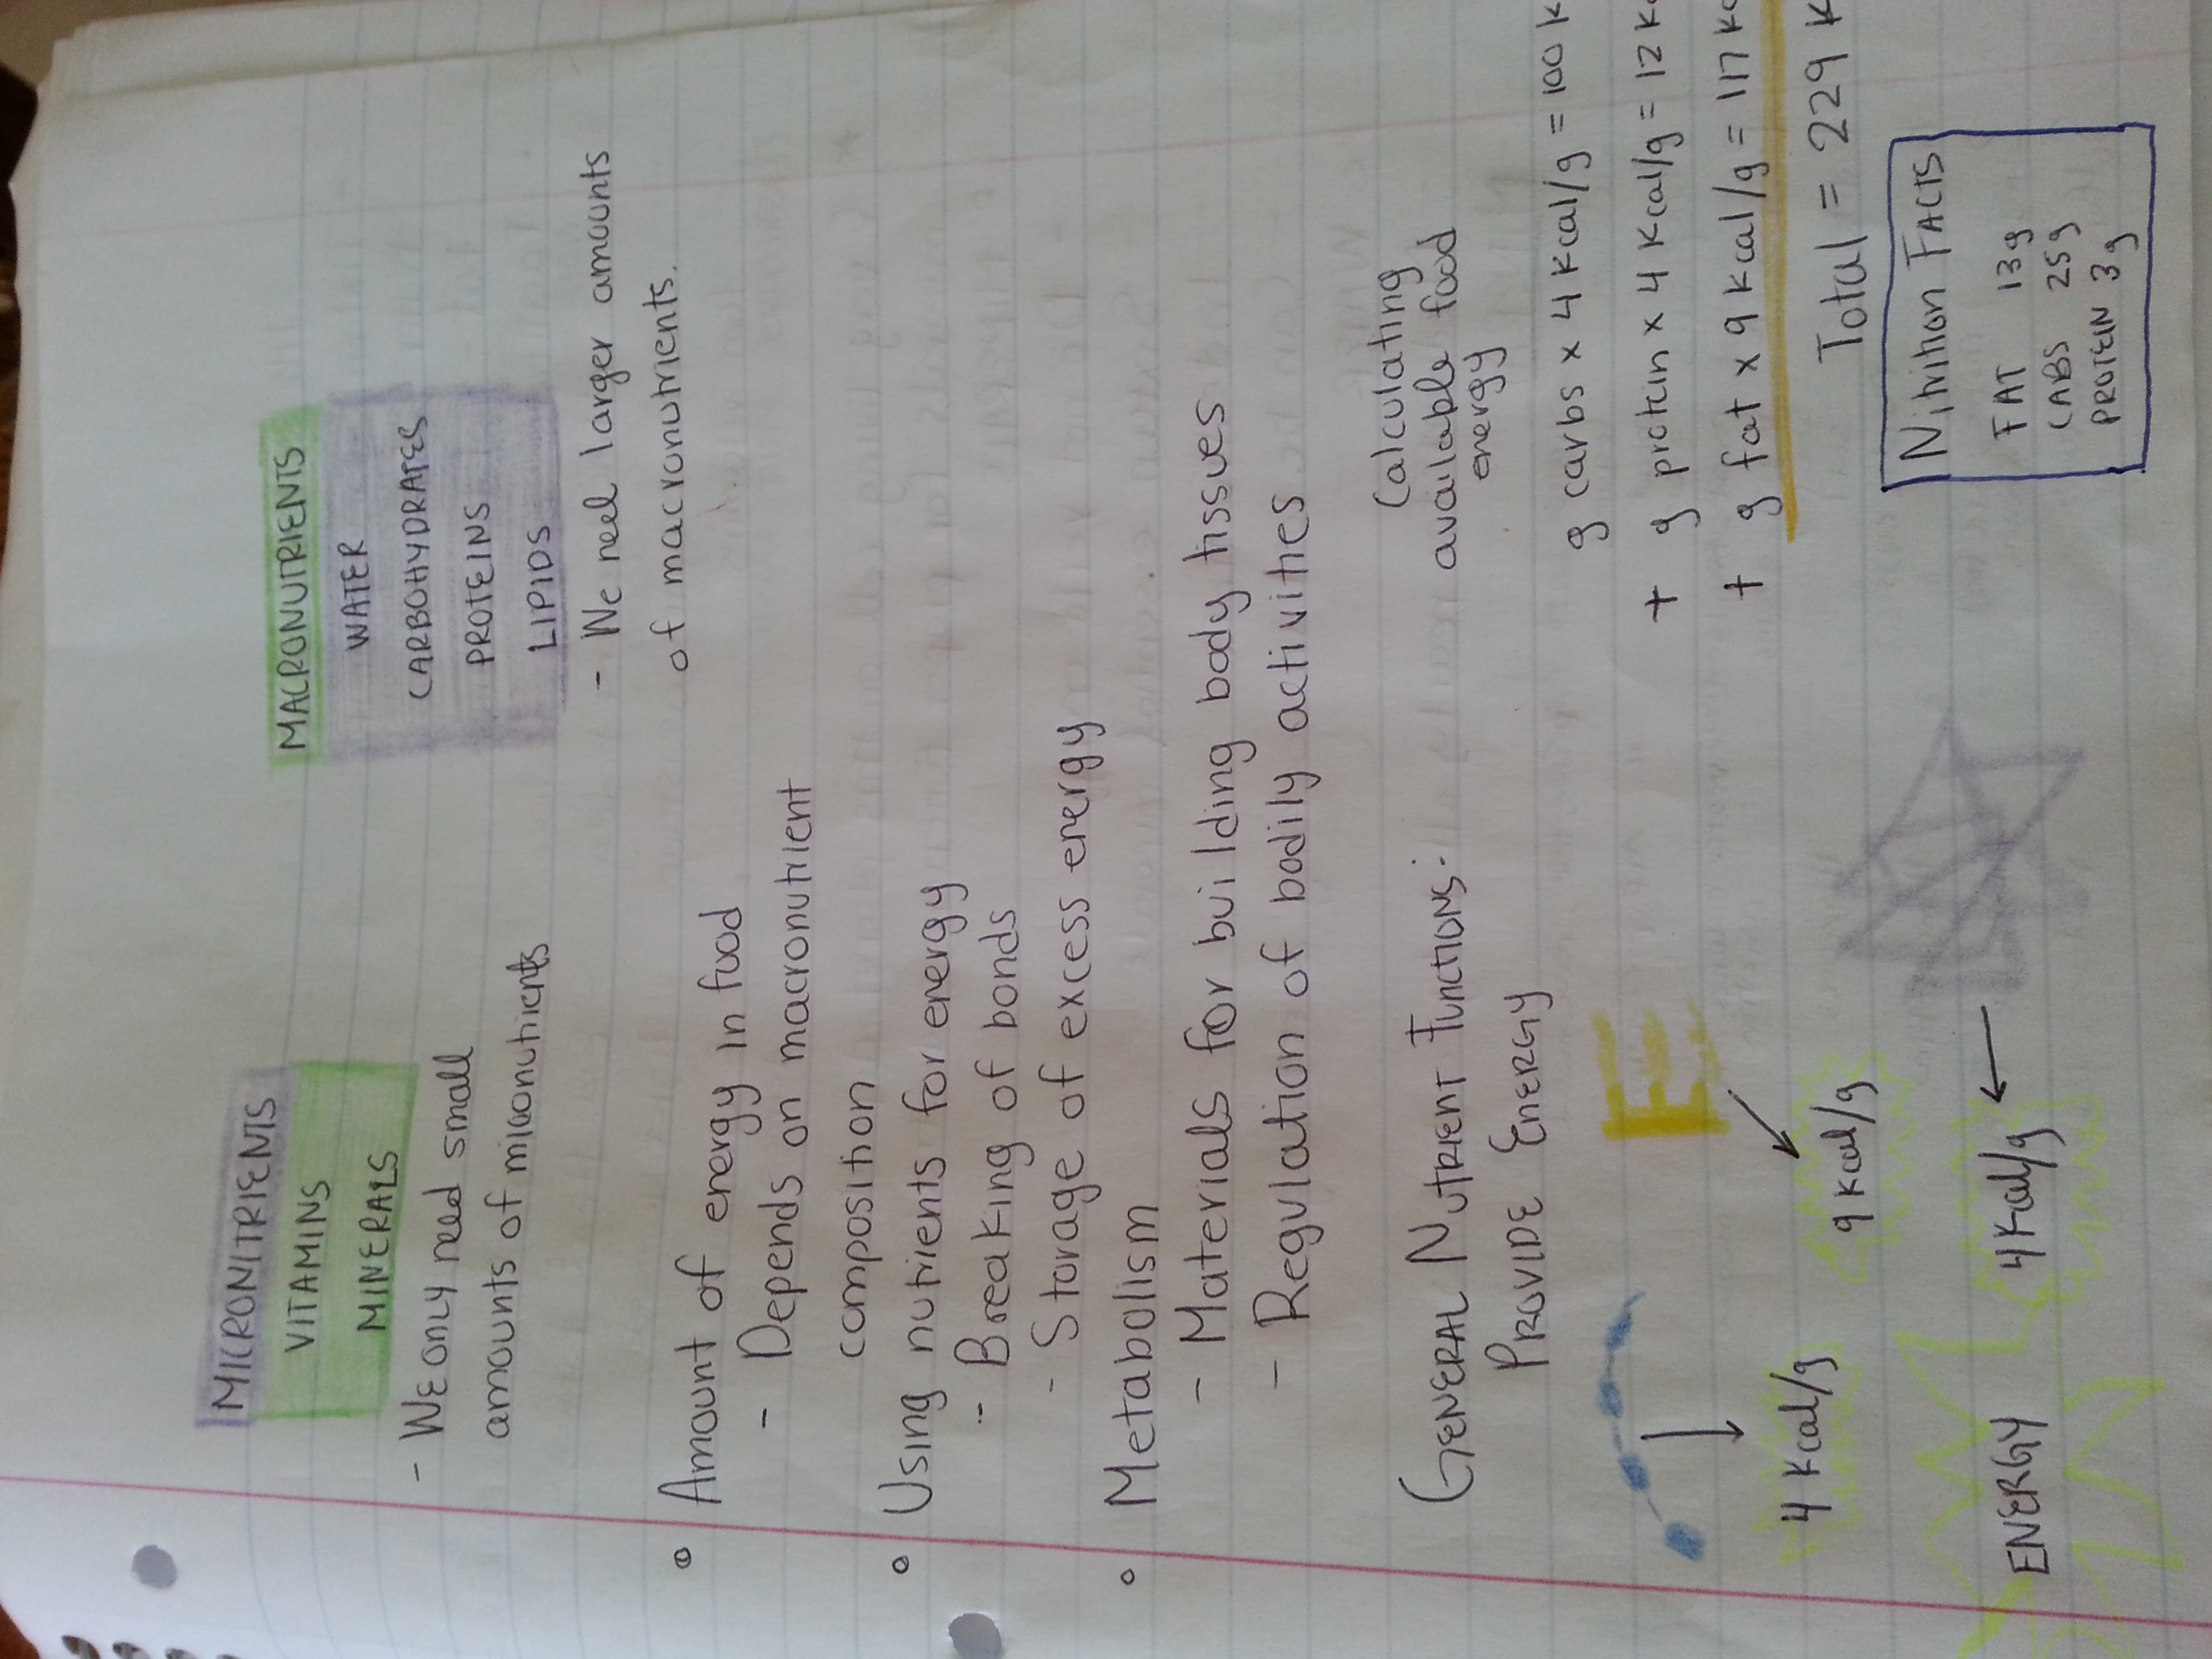 MICRONITRIENTS
VITAMINS
MINERALS
- WE only need small
amounts of micronutrients
MACRONUTRIENTS
WATER
CARBOHYDRATES
PROTEINS
LIPIDS
- We neel larger amounts
of macronutrients.
Amount of energy in food
- Depends on macronutrient
composition
Using nutrients for energy
- Breaking of bonds
- Storage of excess energy
Metabolism
- Materials for building body tissues
- Regulation of bodily activities
GENERAL NUTRIENT FUNCTIONS:
PROVIDE ENERGY
E
4 Kcal/g
9 Kcal/g
4 Kcal/g
ENERGY
Calculating
available food
energy
g carbs x 4 Kcal/g = 100 K
+ g protein x 4 Kcal/g = 12 Kc
+ g fat x 9 Kcal/g = 117 Kc
Total = 229 K
Nitrition FACTS
FAT 13g
CABS 25g
PROTEIN 3g